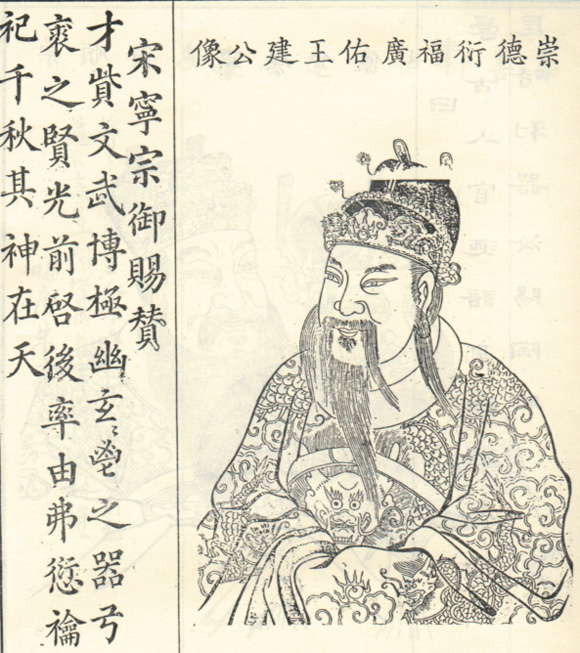 崇德衍福廣佑王建公像
宋寧宗御賜贊
才貲文武博極幽玄〻之器
之賢光前啓後率由弗愆禴
祀千秋其神在天